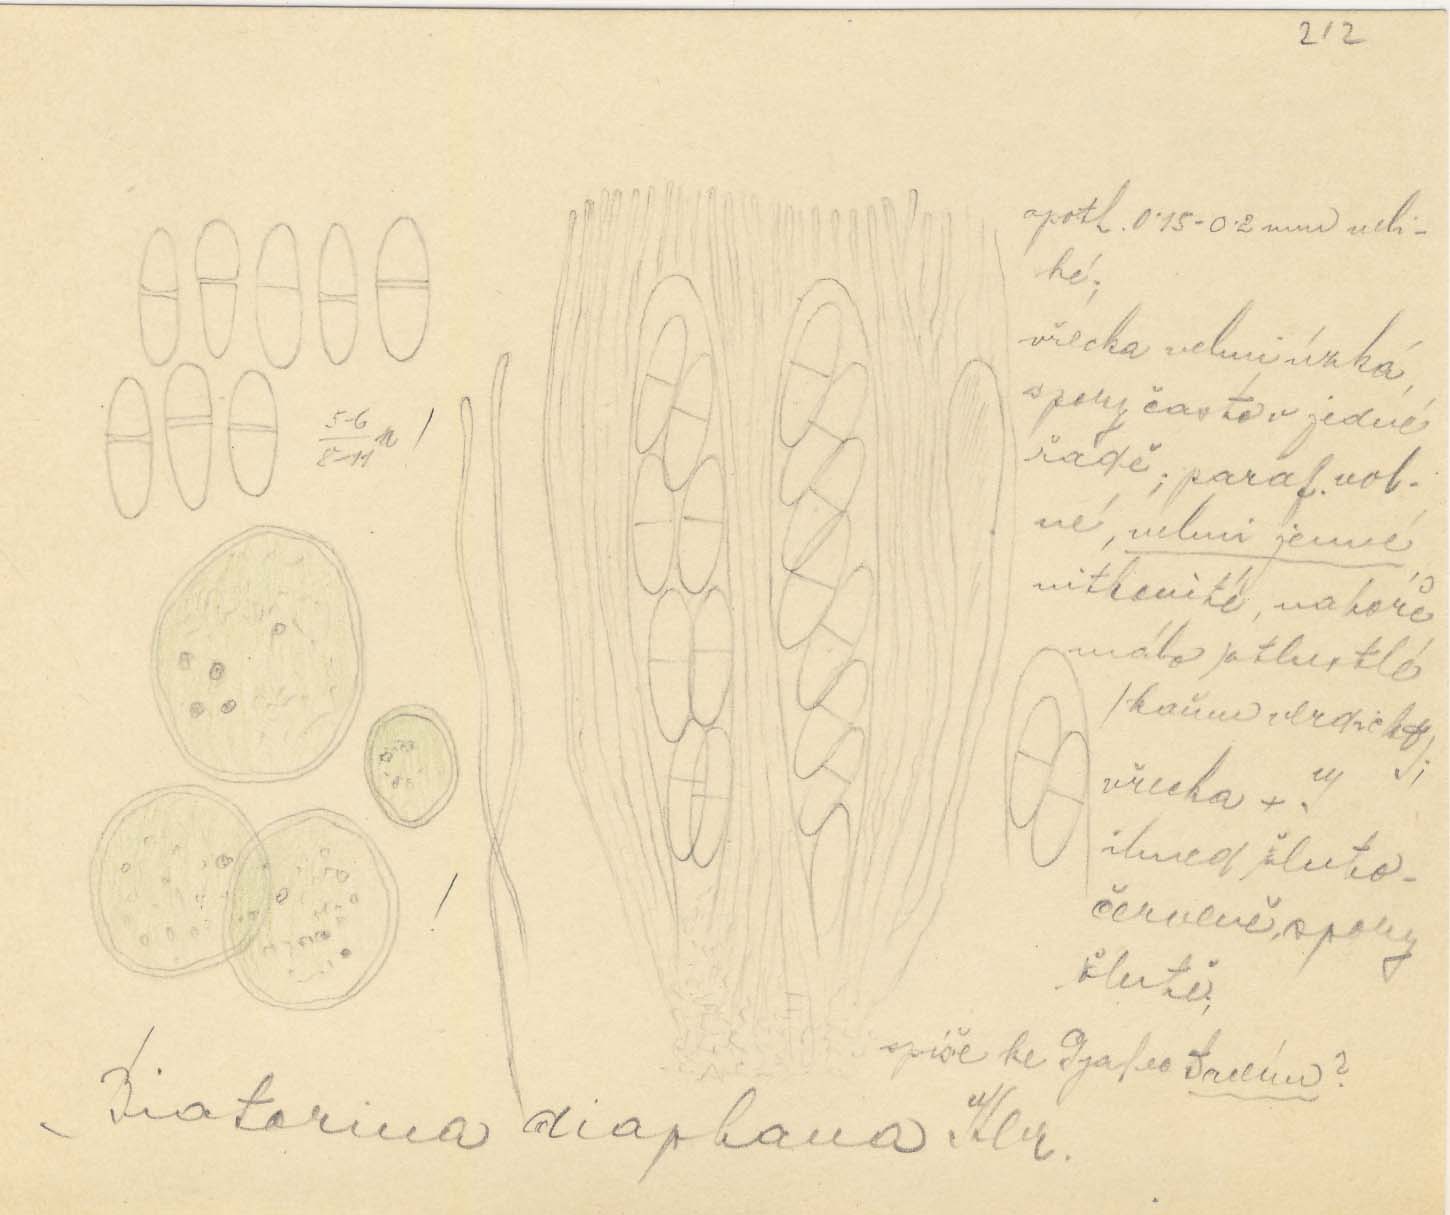 212
apoth. 0·15-0·2 mm veli-
ké;
vřecka velmi úzká,
spory často v jedné
řadě; paraf. vol-
né, velmi jemné
nitkovité, nahoře
málo ztlustlé
vřecka +
ihned žluto-
červeně, spory
žlutě;
5-6
8-11 µ !
!
spíše ke
Biatorina diaphana